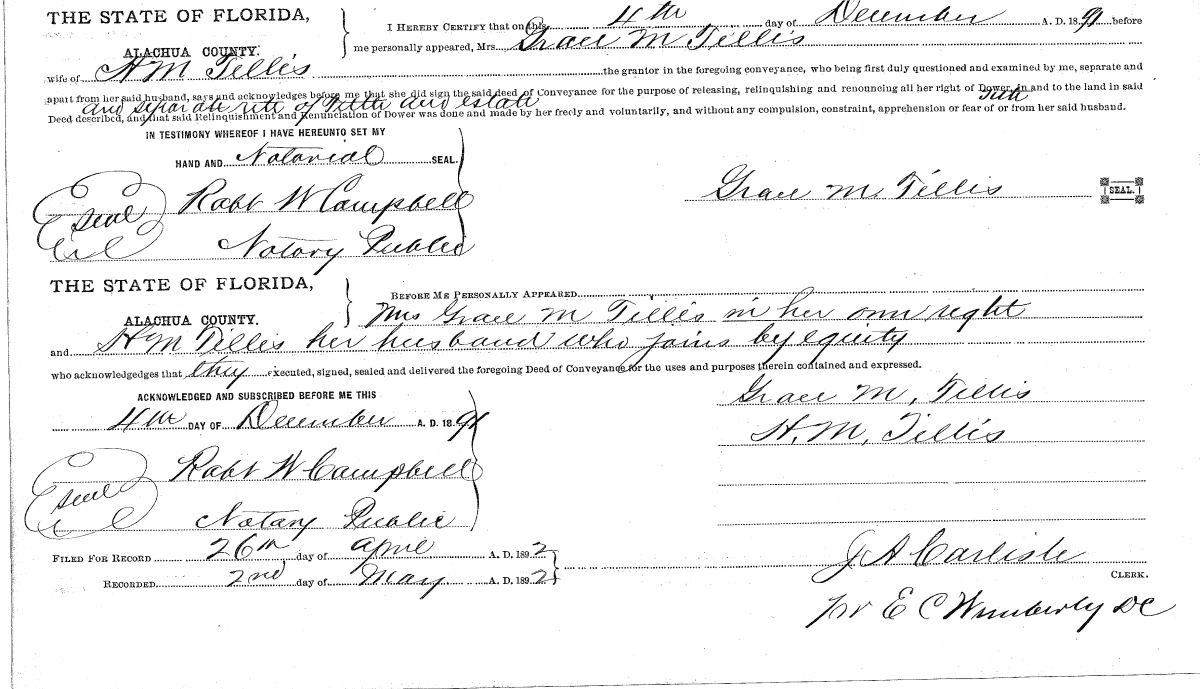 THE STATE OF FLORIDA,
ALACHUA COUNTY.
I HEREBY CERTIFY that on this 4th day of December A. D. 1891 before
me personally appeared, Mrs. Grace M Tillis
wife of H M Tillis the grantor in the foregoing conveyance, who being first duly questioned and examined by me, separate and
apart from her said husband, says and acknowledges before me that she did sign the said deed of Conveyance for the purpose of releasing, relinquishing and renouncing all her right of Dower, in and to the land in said
and separate rite of title and estate
Deed described, and that said Relinquishment and Renunciation of Dower was done and made by her freely and voluntarily, and without any compulsion, constraint, apprehension or fear of or from her said husband.
IN TESTIMONY WHEREOF I HAVE HEREUNTO SET MY
HAND AND Notarial SEAL.
Grace M Tillis SEAL.
seal Robt W Campbell
Notary Public
THE STATE OF FLORIDA,
ALACHUA COUNTY.
BEFORE ME PERSONALLY APPEARED
Mrs Grace M Tillis in her own right
and H M Tillis her husband who joins by equity
who acknowledgedges that they executed, signed, sealed and delivered the foregoing Deed of Conveyance for the uses and purposes therein contained and expressed.
ACKNOWLEDGED AND SUBSCRIBED BEFORE ME THIS
4th DAY OF December A. D. 1891
Grace M. Tillis
H. M. Tillis
seal Robt W Campbell
Notary Public
FILED FOR RECORD 26th day of April A. D. 1892
RECORDED 2nd day of May A. D. 1892
J A Carlisle
CLERK.
pr E C Wimberly DC